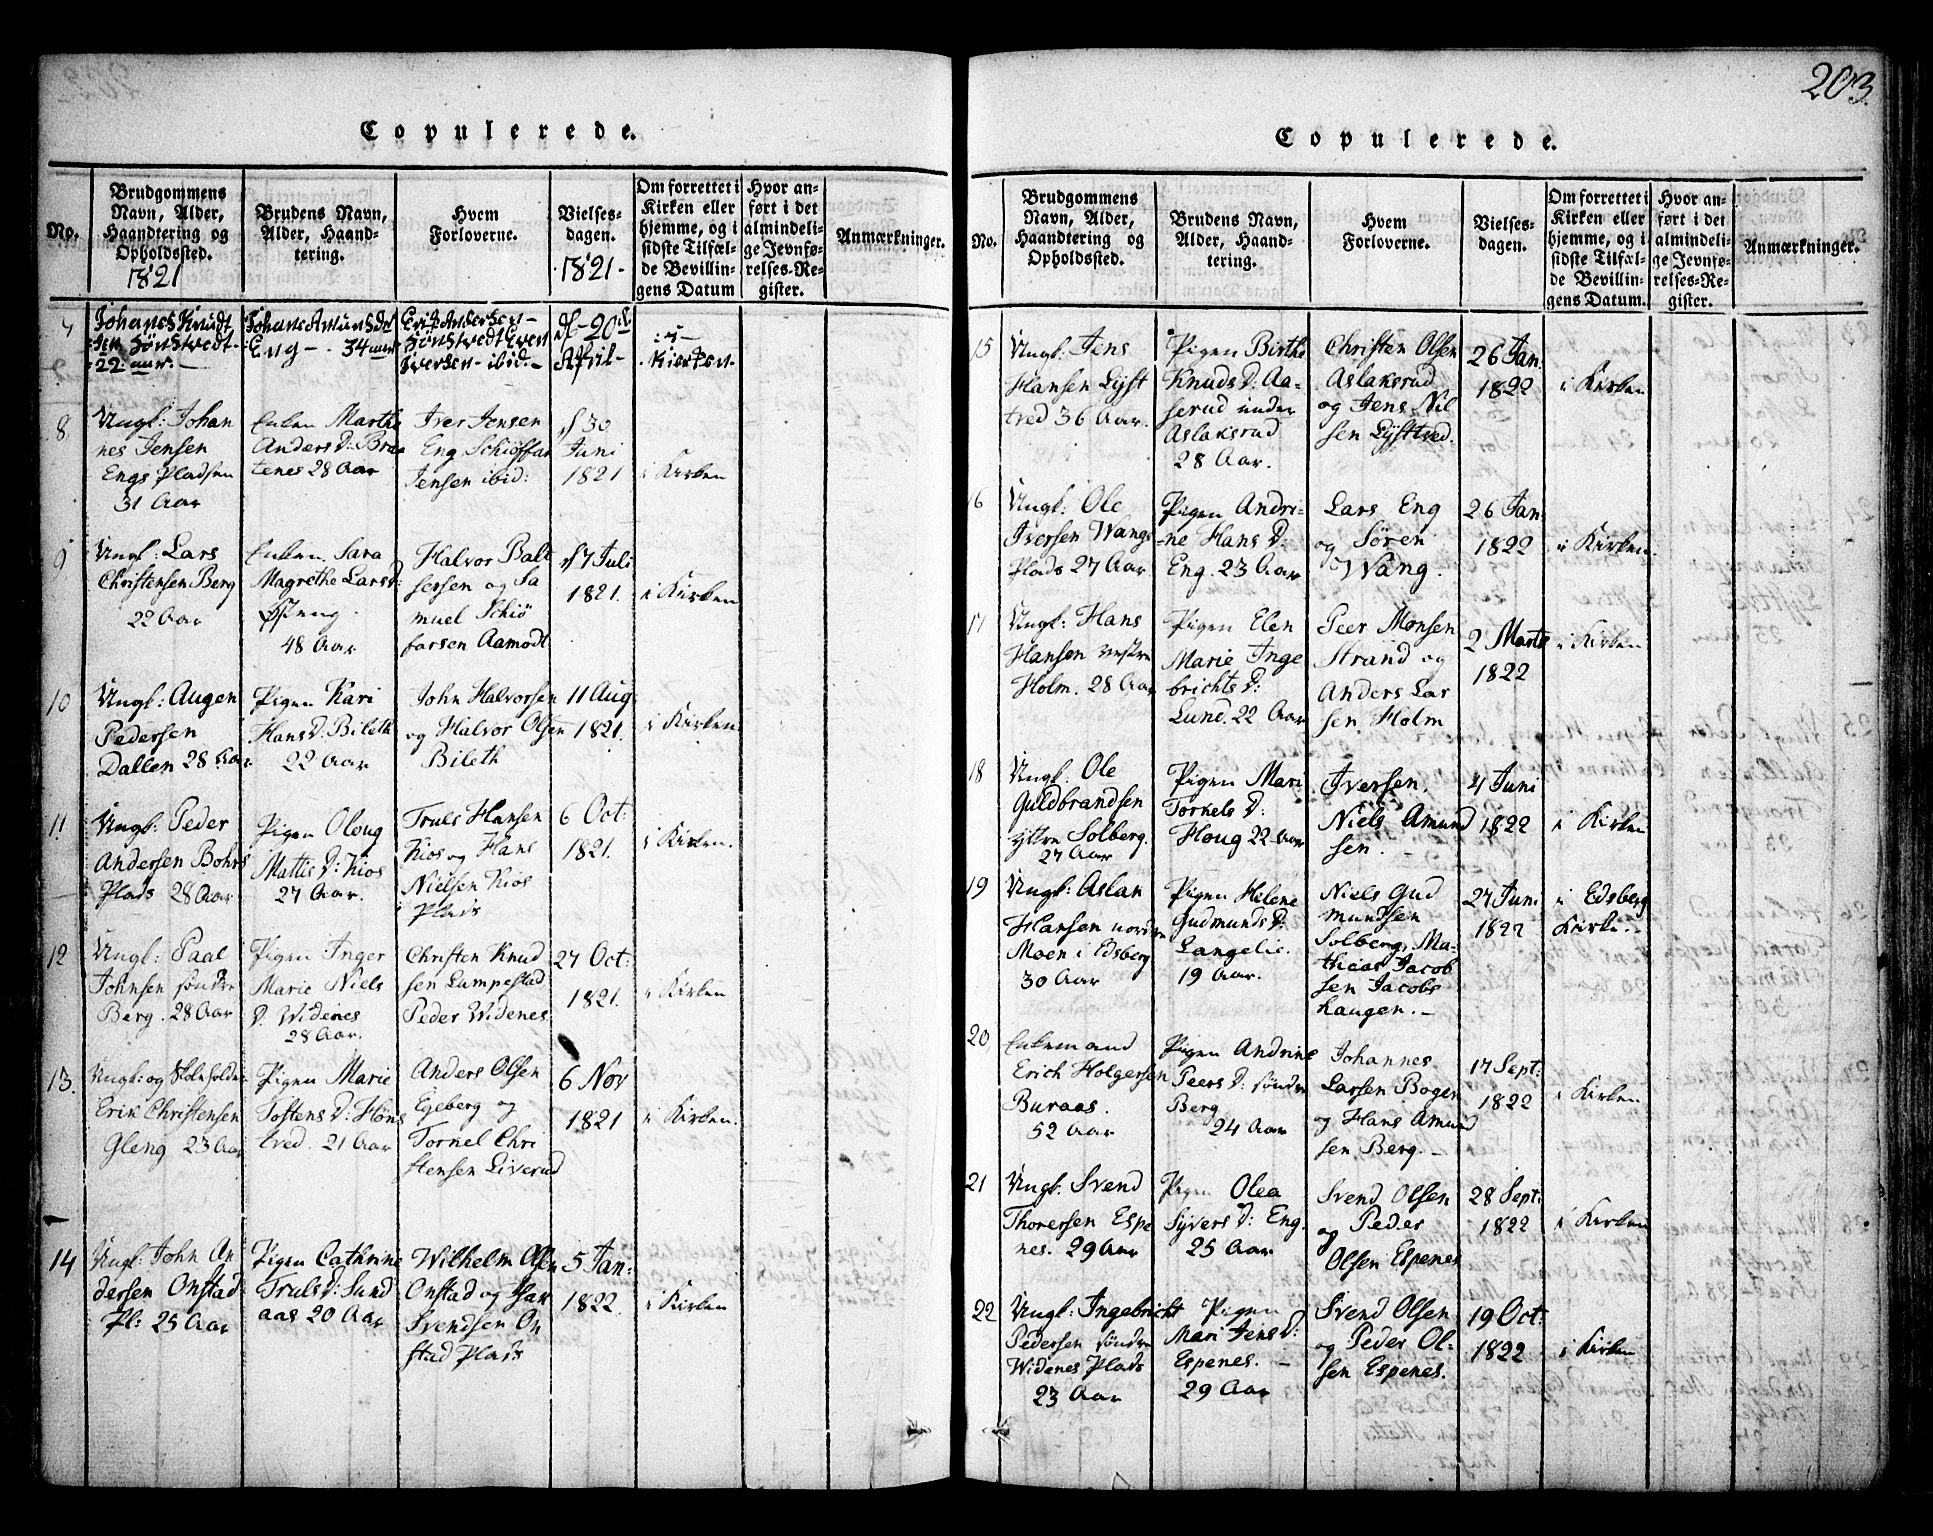 203.
Copulerede.
No.
Brudgommens
Navn, Alder,
Haandtering og
Opholdssted.
1821
Brudens Navn,
Alder, Haand-
tering.
Hvem
Forloverne.
Vielses-
dagen.
1821
Om forrettet i
Kirken eller
hjemme, og i
sidste Tilfæl-
de Bevillin-
gens Datum
Hvor an-
ført i det
almindeli-
ge Jevnfø-
relses-Re-
gister.
Anmærkninger.
7
Johanes Knudt
sen Hønstvedt
22 aar.
Johane Amunds dr
Eng - 34 aar
Erik Andersen
Hønstvedt Even
Iversen ibid.
d. 20de
April
i
Kierken.
8
Ungk: Johan
nes Jensen
Engs Pladsen
31 Aar
Enken Marthe
Anders D: Bra
tenes 28 Aar
Iver Jensen
Eng Schiøffar
Jensen ibid:
d 30
Juni
1821
i Kirken
9
Ungk: Lars
Christensen Berg
22 Aar
Enken Sara
Magrethe Lars D:
Østeng
48 Aar
Halvor Balt
sersen og Sa
muel Schiø
farsen Aamodt
d 7 Juli
1821.
i Kirken
10
Ungk: Augen
Pedersen
Dallen 28 Aar
Pigen Kari
Hans D: Bileth
22 Aar
John Halvorsen
og Halvor Olsen
Bileth
11 Aug
1821.
i Kirken
11
Ungk: Peder
Andersen Bohrs
Plads 28 Aar
Pigen Oloug
Mattis D: Kios
27 Aar.
Truls Hansen
Kios og Hans
Nielsen Kios
Plads
6 Oct:
1821.
i Kirken.
12
Ungk: Paal
Johnsen søndre
Berg. 28 Aar
Pigen Inger
Marie Niels
D. Widenes
28 Aar.
Christen Knud
sen Lumpestad
Peder Widenes
27 Oct:
1821.
i Kirken
13.
Ungk: og Skoleholder
Erik Christensen
Gleng 23 Aar
Pigen Marie
Tostens D: Høns
tved. 21 Aar
Anders Olsen
Egeberg og
Tornel Chri
stensen Liverud
6 Nov
1821
i Kirken.
14
Ungk: John An
dersen Onstad
Pl: 25 Aar
Pigen Cathrine
Truls D: Sund
aas 20 Aar
Wilhelm Olsen
Onstad og
Svendsen On
stad Plads
5 Jan:
1822.
i Kirken
Copulerede.
No.
Brudgommens
Navn, Alder,
Haandtering og
Opholdssted.
Brudens Navn,
Alder, Haand-
tering.
Hvem
Forloverne.
Vielses-
dagen.
Om forrettet i
Kirken eller
hjemme, og i
sidste Tilfæl-
de Bevillin-
gens Datum.
Hvor an-
ført i det
almindeli-
ge Jevnfø-
relses-Re-
gister.
Anmærkninger.
15
Ungk: Jens
Hansen Lyst
tved 36 Aar.
Pigen Birthe
Knuds D: Aa-
serud under
Aslaksrud
28 Aar.
Christen Olsen
Aslaksrud
og Jens Nil
sen Lysttved.
26 Jan:
1822
i Kirken
16
Ungk: Ole
Iversen Wangs
Plads 27 Aar
Pigen Andri-
ne Hans D:
Eng. 23 Aar
Lars Eng
og Søren
Wang.
26 Jan:
1822
i Kirken.
17
Ungk: Hans
Hansen vestre
Holm. 28 Aar
Pigen Elen
Marie Inge
brichts D:
Lund. 22 Aar
Peer Monsen
Strand og
Anders Lar
sen Holm
2 Marts
1822
i Kirken
18
Ungk: Ole
Guldbrandsen
yttre Solberg.
27 Aar
Pigen Mari
Tornels D:
Houg 22 Aar
Iversen.
Niels Amund
sen.
4 Juni
1822
i Kirken
19
Ungk: Aslan
Hansen nordre
Moen i Edsberg
30 Aar
Pigen Helene
Gudmunds D:
Langelie.
19 Aar.
Niels Gud
mundsen
Solberg, Ma-
thias Jacob
sen Jacobs
haugen.
27 Juni
1822
i Edsberg
Kirke.
20
Enkemand
Erich Holgersen
Buraas.
52 Aar
Pigen Andrine
Peers D: søndre
Berg
24 Aar
Johannes
Larsen Boger
og Hans Amund
sen Berg.
17 Sept:
1822
i Kirken
21
Ungk. Svend
Thoresen Espe
nes. 29 Aar
Pigen Olea
Syvers D: Eng.
25 Aar
Svend Olsen
og Peder
Olsen Espenes
28 Sept:
1822
i Kirken
22
Ungk: Ingebricht
Pedersen søndre
Widenes Plads
23 Aar
Pigen
Mari Jens D:
Espenes.
29 Aar
Svend Olsen
og Peder Ol-
sen Espenes.
19 Oct:
1822
i Kirken